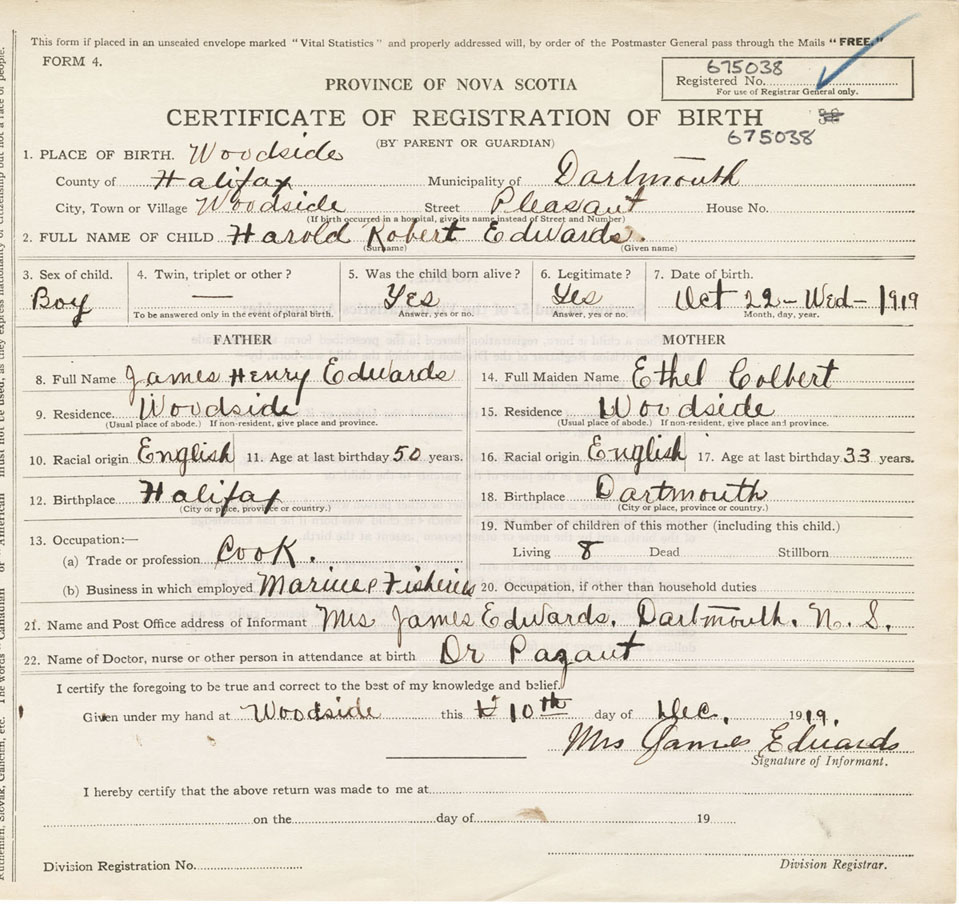 This form if placed in an unsealed envelope marked "Vital Statistics" and properly addressed will, by order of the Postmaster General pass through the Mails "FREE."
FORM 4.
675038
Registered No.
For use of Registrar General only.
PROVINCE OF NOVA SCOTIA
CERTIFICATE OF REGISTRATION OF BIRTH
675038
(BY PARENT OR GUARDIAN)
1. PLACE OF BIRTH. Woodside
County of Halifax Municipality of Dartmouth
City, Town or Village Woodside Street Pleasant House No.
(If birth occurred in a hospital, give its name instead of Street and Number)
2. FULL NAME OF CHILD Harold Robert Edwards.
(Surname) (Given name)
3. Sex of child. 4. Twin, triplet or other? 5. Was the child born alive? 6. Legitimate? 7. Date of birth.
Boy — Yes Yes Oct 22 - Wed - 1919
To be answered only in the event of plural birth. Answer, yes or no. Answer, yes or no. Month, day, year.
FATHER MOTHER
8. Full Name James Henry Edwards 14. Full Maiden Name Ethel Colbert
9. Residence. Woodside 15. Residence Woodside
(Usual place of abode.) If non-resident, give place and province. (Usual place of abode.) If non-resident, give place and province.
10. Racial origin English 11. Age at last birthday 50 years. 16. Racial origin English 17. Age at last birthday 33 years.
12. Birthplace Halifax 18. Birthplace Dartmouth
(City or place, province or country.) (City or place, province or country.)
19. Number of children of this mother (including this child.)
13. Occupation:—
(a) Trade or profession Cook. Living 8 Dead Stillborn
(b) Business in which employed Marine & Fisheries 20. Occupation, if other than household duties
21. Name and Post Office address of Informant Mrs James Edwards, Dartmouth, N. S.
22. Name of Doctor, nurse or other person in attendance at birth Dr Pazant
I certify the foregoing to be true and correct to the best of my knowledge and belief.
Given under my hand at Woodside this 10th day of Dec. 1919.
Mrs James Edwards
Signature of Informant.
I hereby certify that the above return was made to me at
on the day of 19
Division Registration No. Division Registrar.